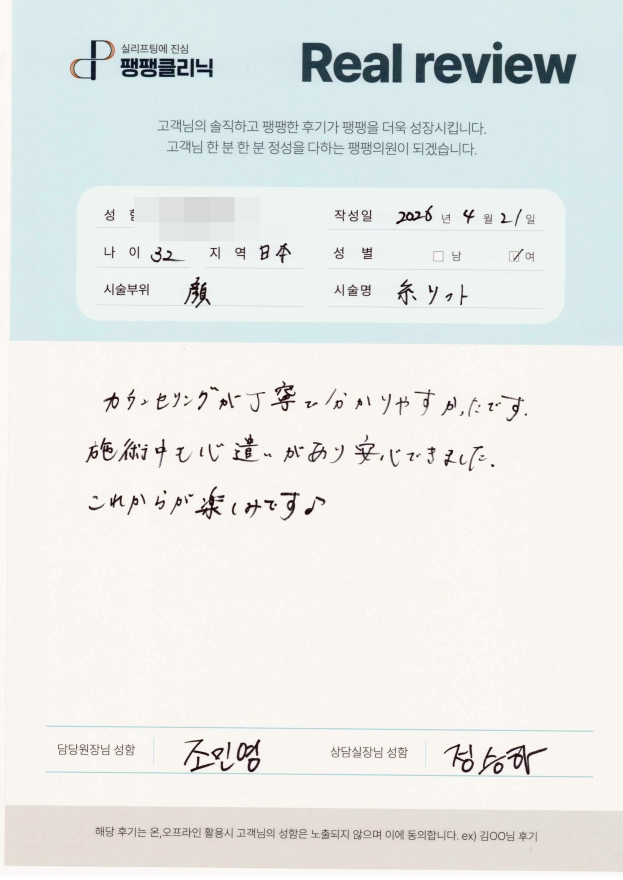 실리프팅에 진심
팽팽클리닉
Real review
고객님의 솔직하고 팽팽한 후기가 팽팽을 더욱 성장시킵니다.
고객님 한 분 한 분 정성을 다하는 팽팽의원이 되겠습니다.
성 함 작성일 2026 년 4 월 21 일
나 이 32 지 역 日本 성 별 남 여
시술부위 顔 시술명 糸リフト
カウンセリングが丁寧で分かりやすかったです。
施術中も心遣いがあり安心できました。
これからが楽しみです♪
담당원장님 성함 조민영 상담실장님 성함 정승하
해당 후기는 온,오프라인 활용시 고객님의 성함은 노출되지 않으며 이에 동의합니다. ex) 김OO님 후기